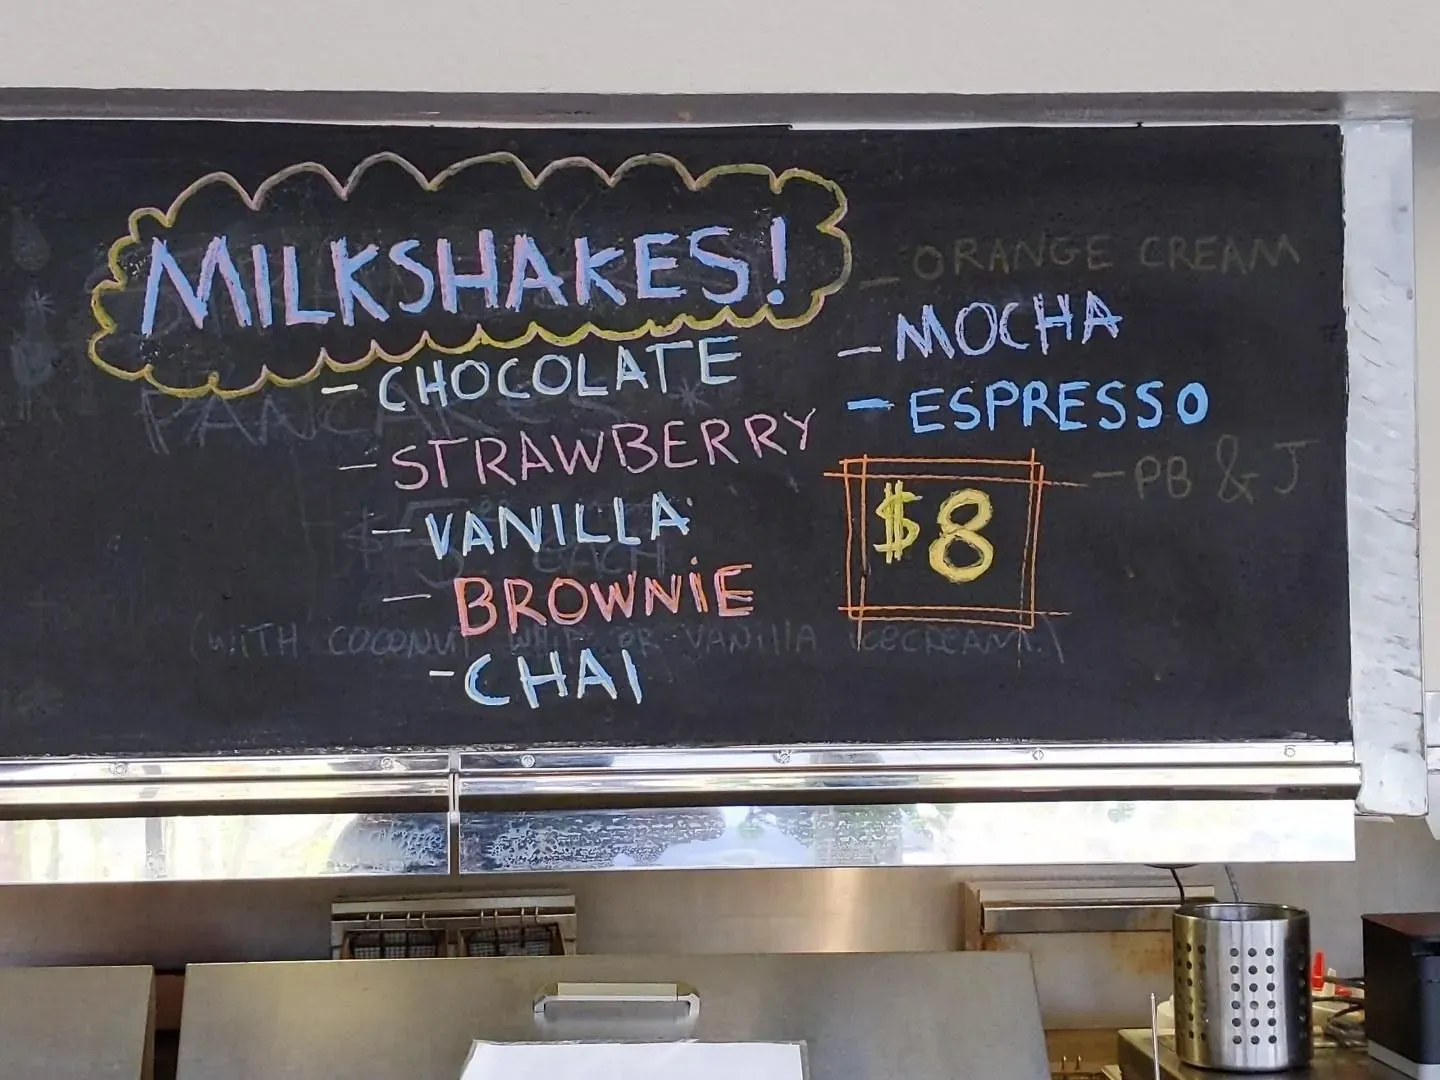 MILKSHAKES!
- CHOCOLATE
- STRAWBERRY
- VANILLA
- BROWNIE
- CHAI
- ORANGE CREAM
- MOCHA
- ESPRESSO
- PB & J
$8
PANCAKES *
$5 EACH
(WITH COCONUT WHIP OR VANILLA ICECREAM.)